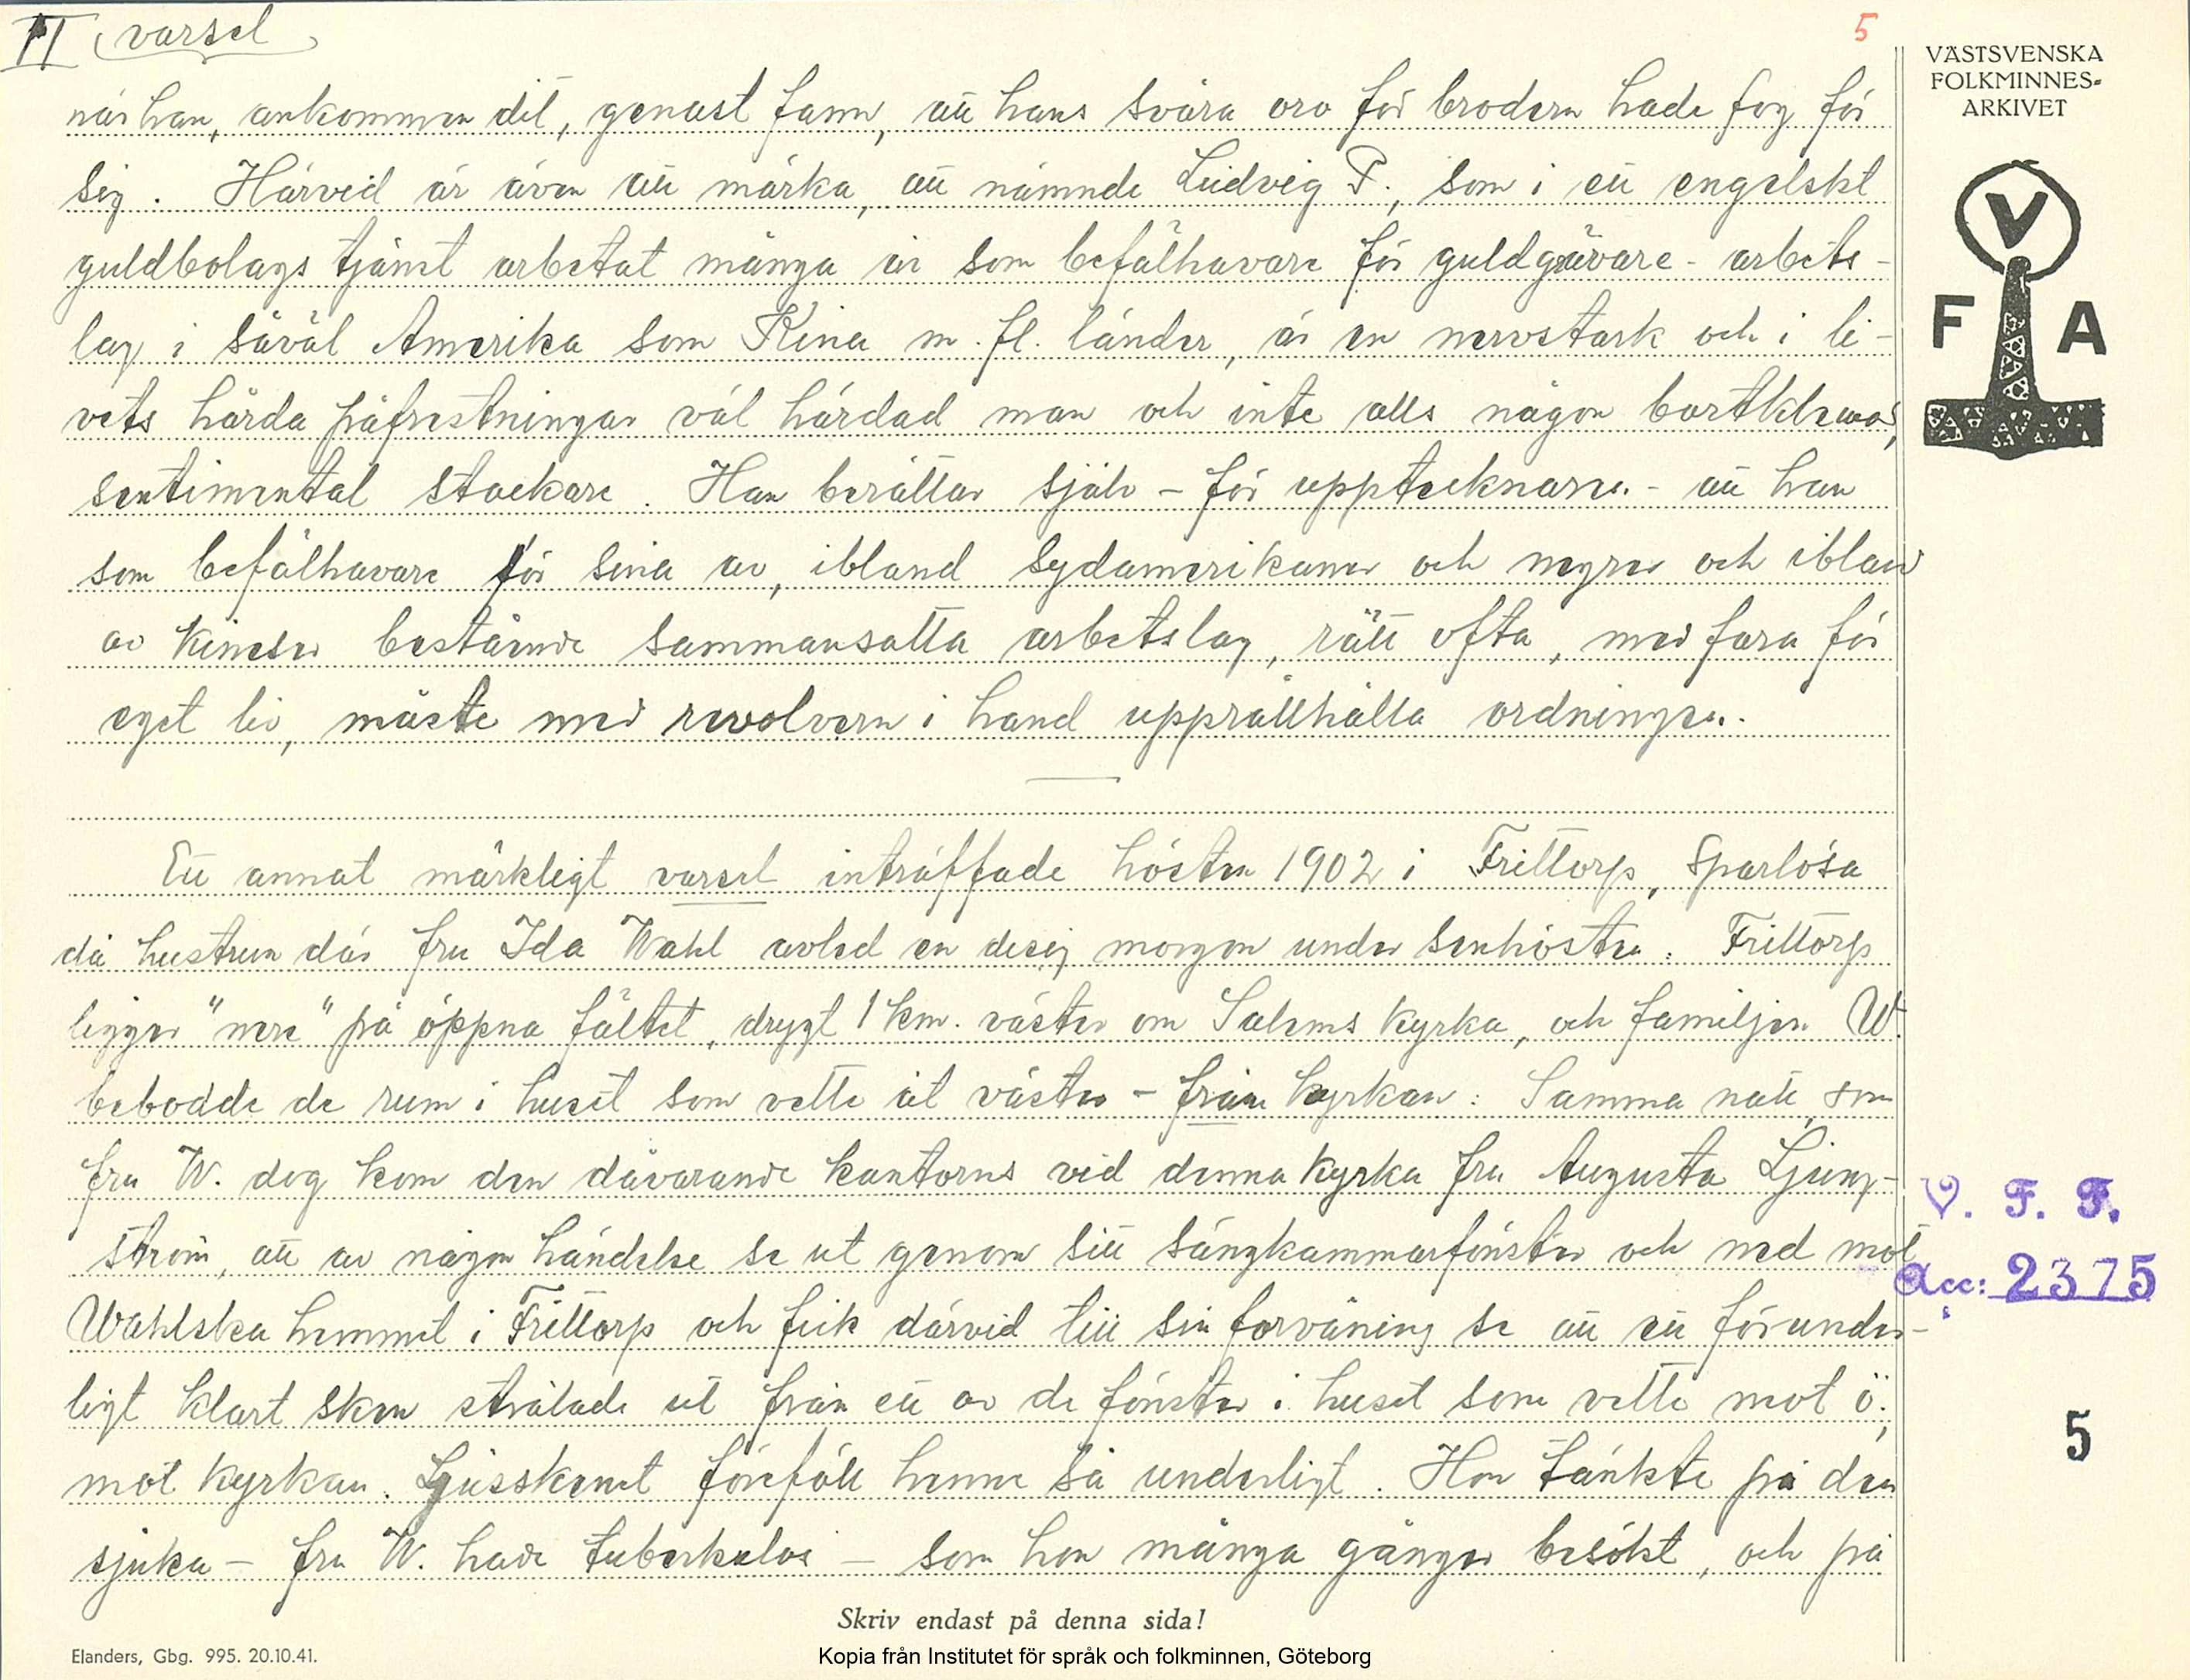 II (varsel)
5
när han, ankommen dit, genast fann, att hans svåra oro för brodern hade fog för
sig. Härvid är även att märka, att nämnde Ludvig P., som i ett engelskt
guldbolags tjänst arbetat många år som befälhavare för guldgrävare-arbets-
lag i såväl Amerika som Kina m.fl. länder, är en nervstark och i li-
vets hårda påfrestningar väl härdad man och inte alls någon bortklemad,
sentimental stackare. Han berättar själv - för upptecknaren - att han
som befälhavare för sina av, ibland sydamerikaner och negrer och ibland
av kineser bestående sammansatta arbetslag, rätt ofta, med fara för
eget liv, måste med revolvern i hand upprätthålla ordningen.
Ett annat märkligt varsel inträffade hösten 1902 i Frittorp, Sparlösa
då hustrun där fru Ida Wahl avled en disig morgon under senhösten. Frittorp
ligger "nere" på öppna fältet, drygt 1 km. väster om Salems kyrka, och familjen W.
bebodde de rum i huset som vette åt väster - från kyrkan: Samma natt, som
fru W. dog kom den dåvarande kantorns vid denna kyrka fru Augusta Ljung-
ström, att av någon händelse se ut genom sitt sängkammarfönster och ned mot
Wahlska hemmet i Frittorp och fick därvid till sin förvåning se att ett förunder-
ligt klart sken strålade ut från ett av de fönster i huset som vette mot ö.,
mot kyrkan. Ljusskenet föreföll henne så underligt. Hon tänkte på den
sjuka - fru W. hade tuberkulos - som hon många gånger besökt, och på
Skriv endast på denna sida!
Elanders, Gbg. 995. 20.10.41.
Kopia från Institutet för språk och folkminnen, Göteborg
VÄSTSVENSKA
FOLKMINNES-
ARKIVET
V
F A
V. F. F.
Acc: 2375
5